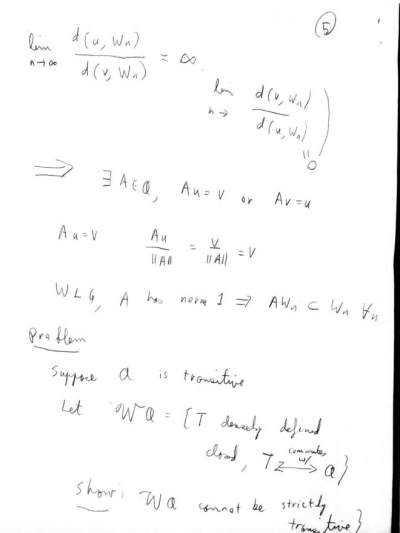 ⑤
lim n→∞ d(u, Wn) / d(v, Wn) = ∞
lim n→ d(v, Wn) / d(u, Wn) = 0
⟹ ∃ A ∈ Q, Au = v or Av = u
Au = v Au / ||A|| = v / ||A|| = v
WLG, A has norm 1 ⟹ AWn ⊂ Wn ∀n
Problem
Suppose Q is transitive
Let WQ = {T densely defined
closed, T ⟷ commutes w/ Q}
Show: WQ cannot be strictly
transitive}